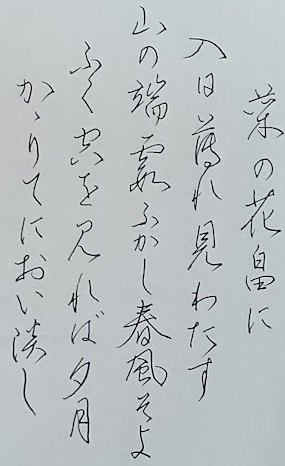 菜の花畠に
入日薄れ見わたす
山の端霞ふかし春風そよ
ふく空を見れば夕月
かゝりてにおい淡し